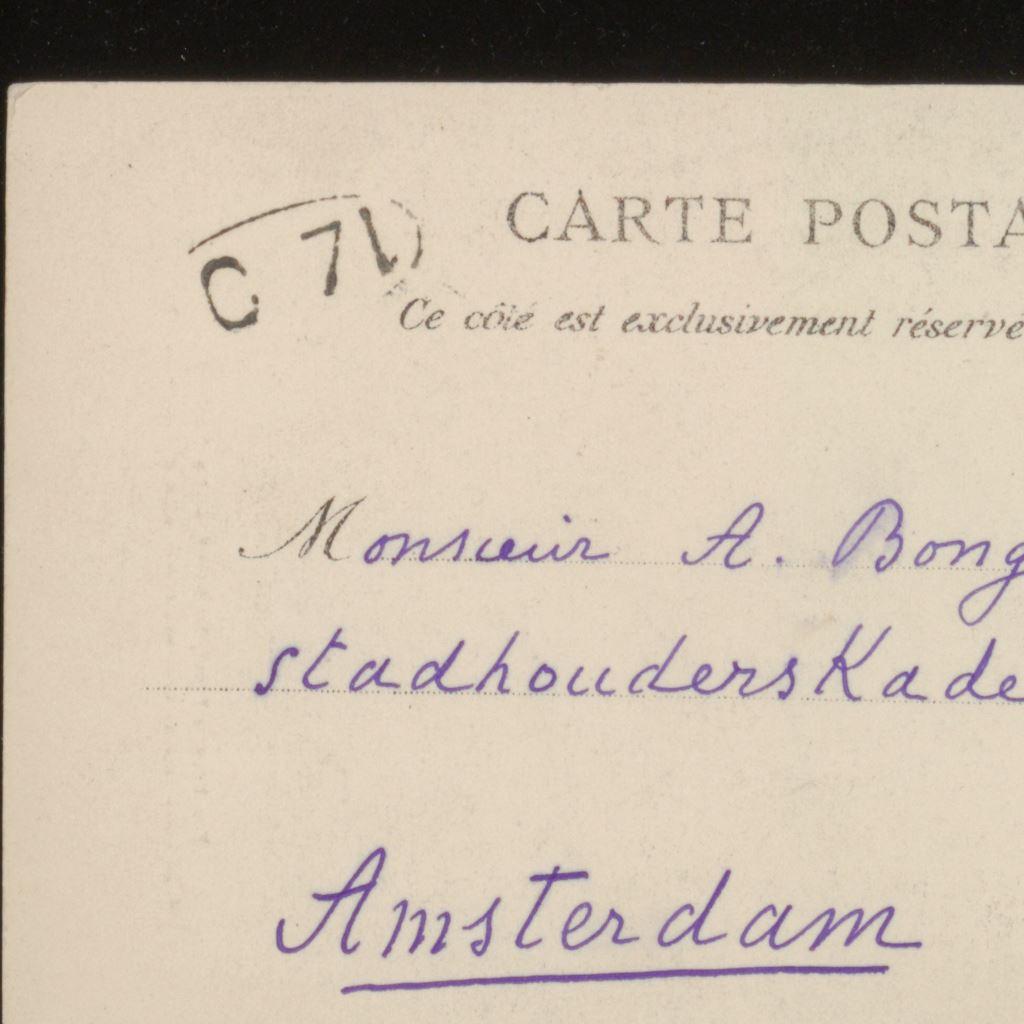 CARTE POSTA
C 71
Ce côté est exclusivement réservé
Monsieur A. Bong
stadhouders Kade
Amsterdam